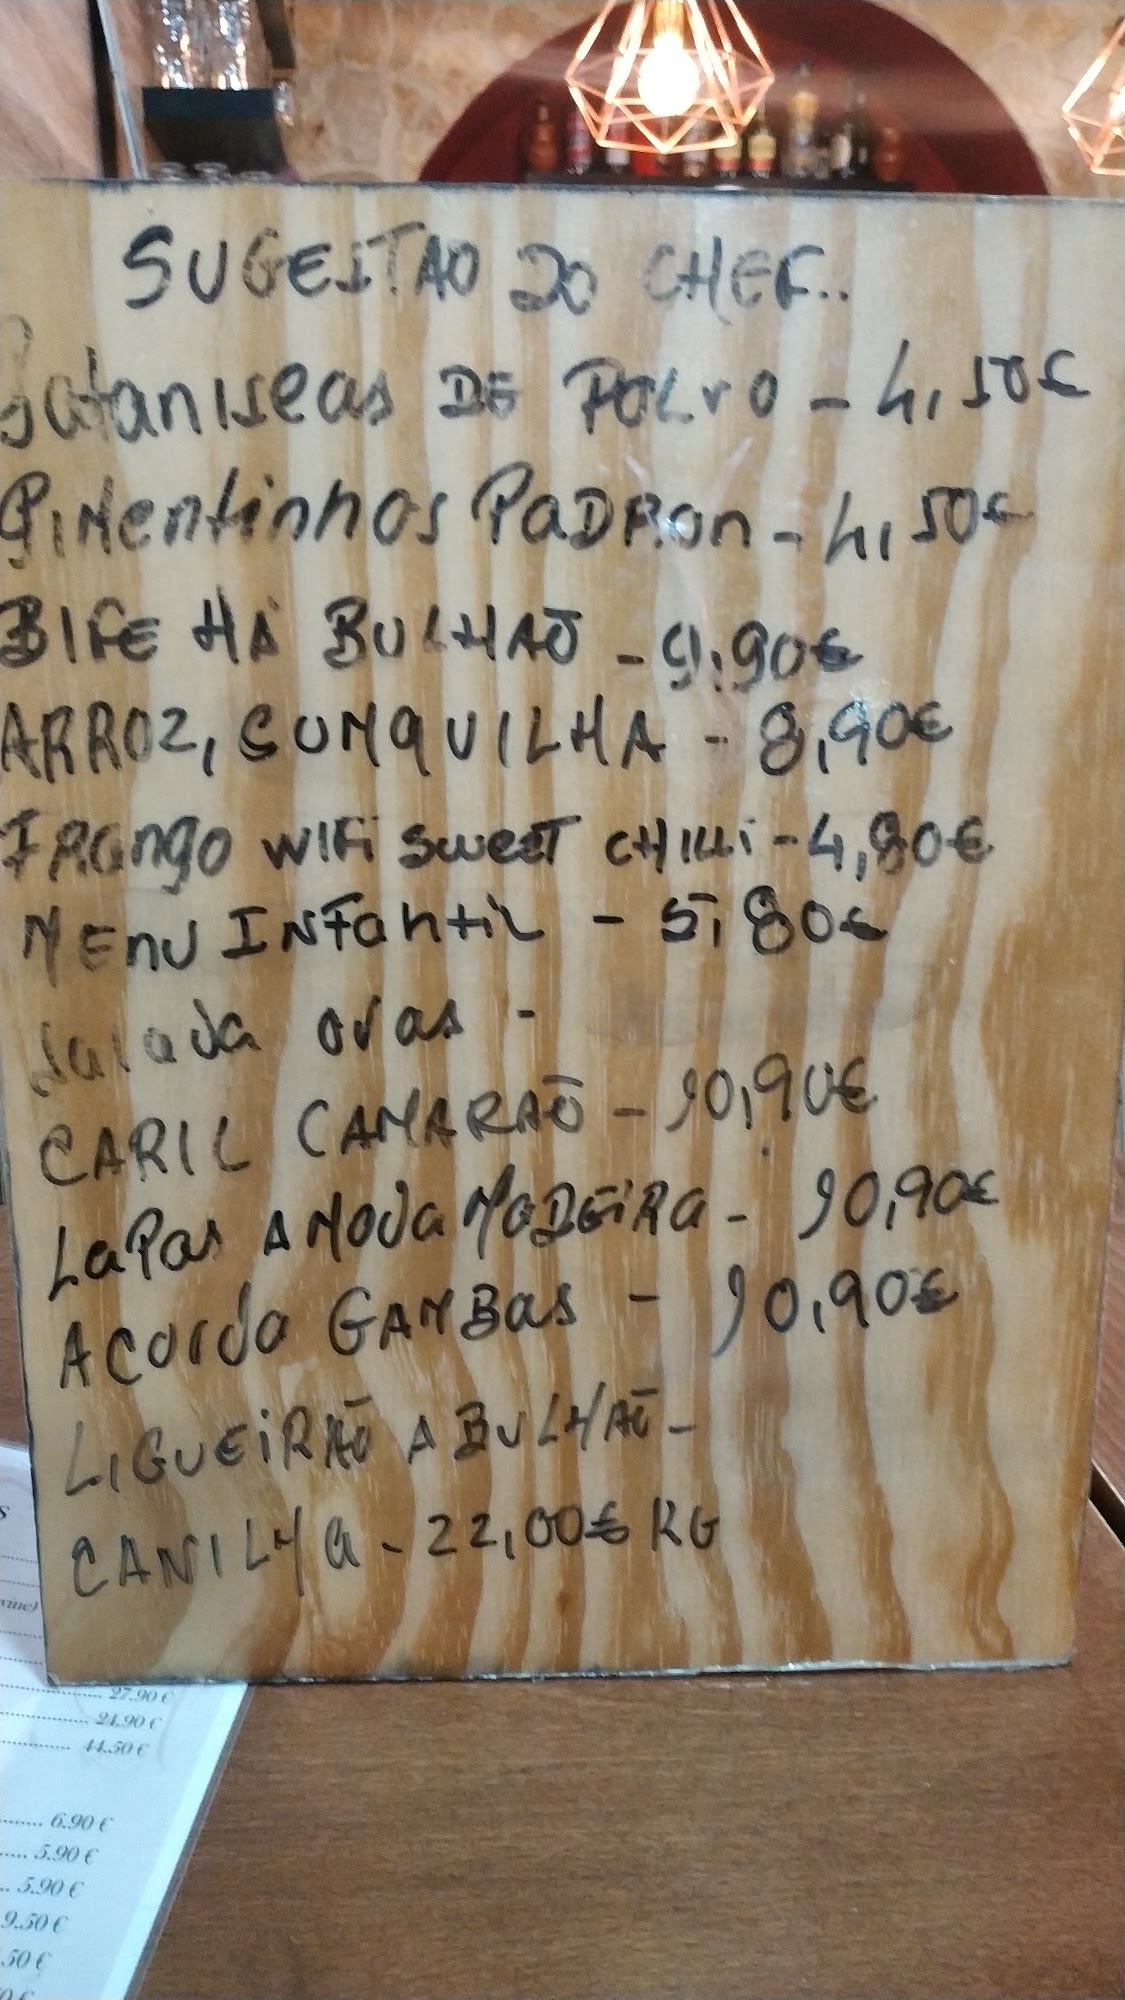 SUGEITAO DO CHEF..
Pataniscas DE POLVO - 4,50€
PiMentinhos PaDRon - 4,50€
BIFE HÁ BULHAÕ - 9,90€
ARROZ, CUMQUILHA - 8,90€
FRango WiFi SWEET CHILLI - 4,80€
MEnU INFantiL - 5,80€
Salada ovas -
CARIL CAMARAÕ - 10,90€
LaPas A MODa MaDEiRa - 10,90€
ACORDa GAMBas - 10,90€
LIGUEiRAÕ A BULHAÕ -
CANILHa - 22,00€ KG
27.90 €
24.90 €
44.50 €
6.90 €
5.90 €
5.90 €
9.50 €
.50 €